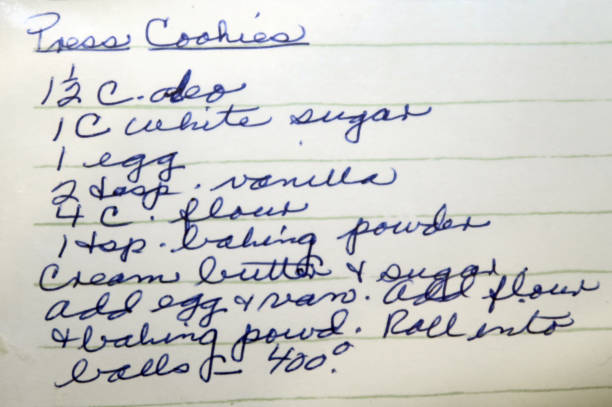 Press Cookies
1 1/2 C. oleo
1 C white sugar
1 egg
2 tsp. vanilla
4 C. flour
1 tsp. baking powder
Cream butter & sugar
add egg & van. Add flour
& baking powd. Roll into
balls - 400°.